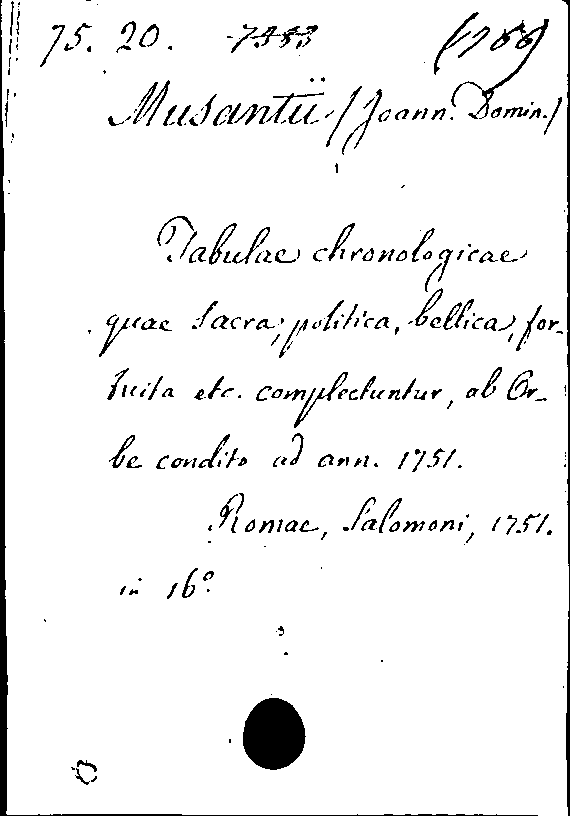 75. 20. 7383 (1766)
Musantii / Joann. Domin. /
Tabulae chronologicae
quae sacra, politica, bellica, for-
tuita etc. complectuntur, ab Or-
be condito ad ann. 1751.
Romae, Salomoni, 1751.
in 16º